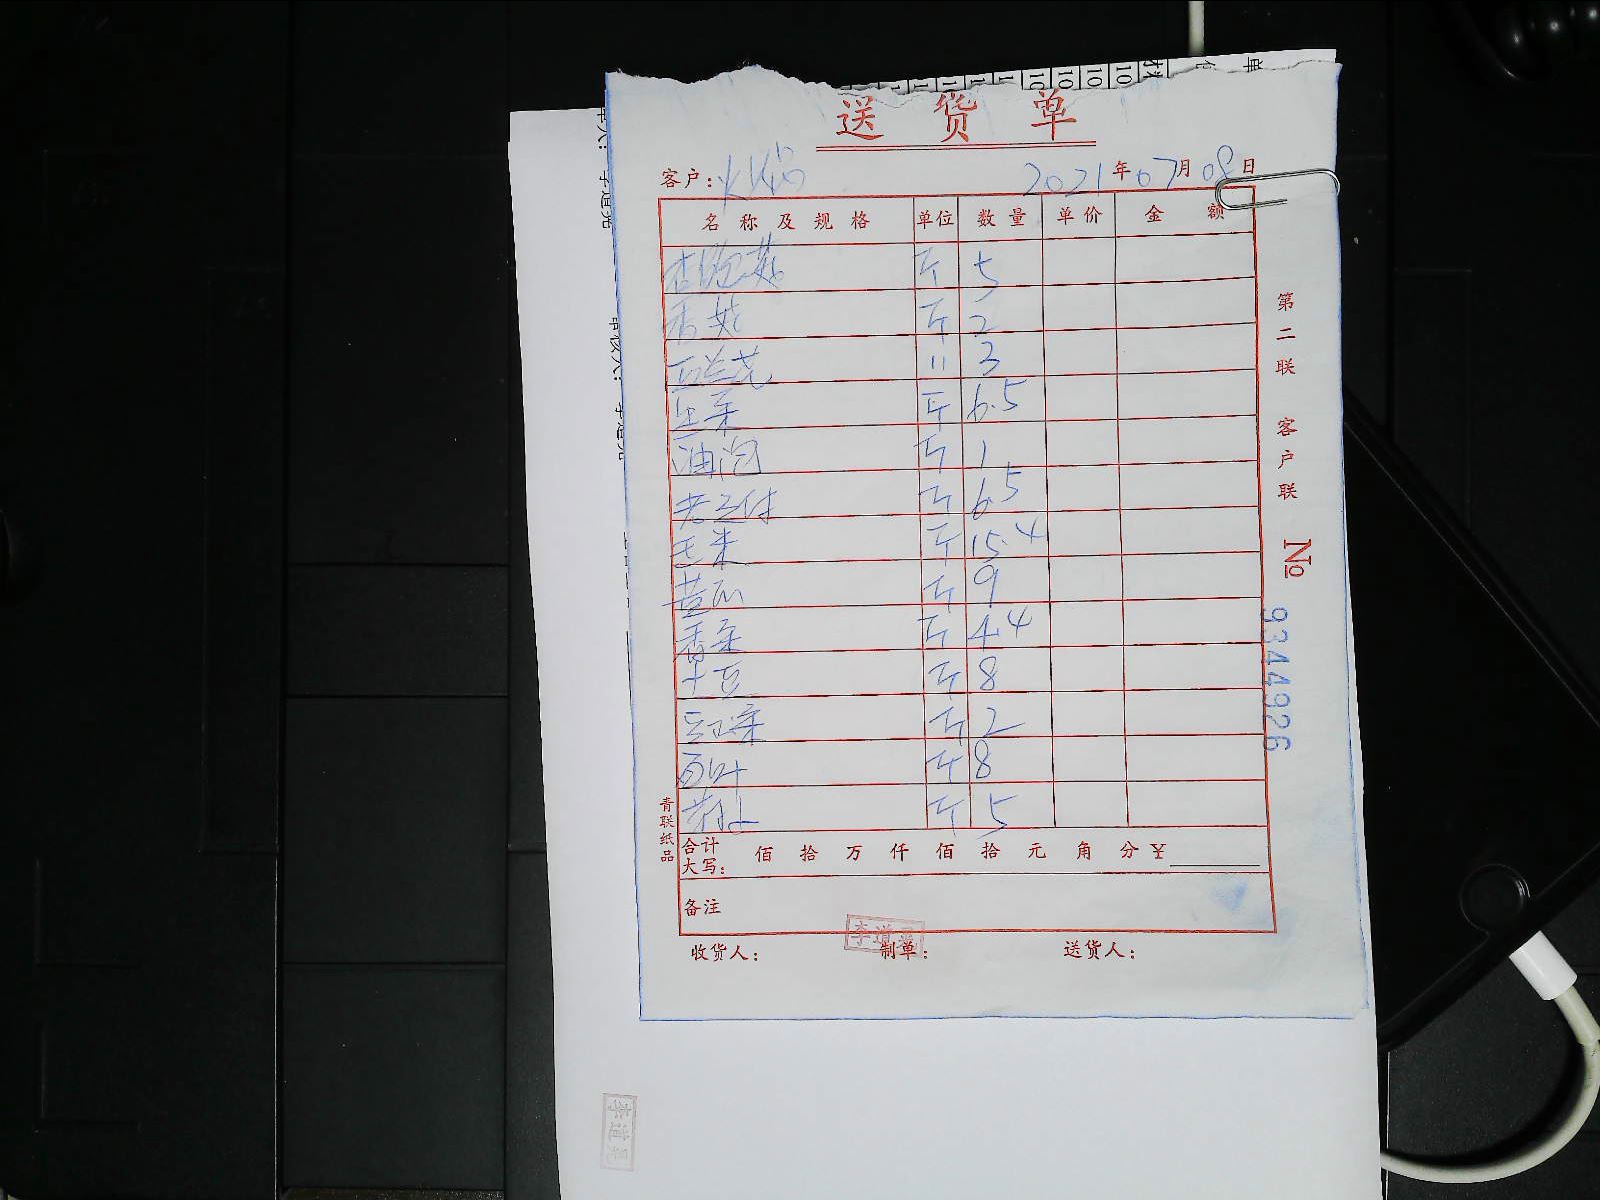 送货单
客户: 火锅 2021年07月08日
名称及规格 单位 数量 单价 金额
杏鲍菇 斤 5
香菇 斤 2
西兰花 〃 3
生菜 斤 6.5
油泡 斤 1
老豆付 斤 6.5
玉米 斤 15.4
苦瓜 斤 9
香菜 斤 4.4
土豆 斤 8
斤 2
百叶 斤 8
斤 5
合计大写: 佰拾万仟佰拾元角分￥
备注
收货人: 制单: 送货人:
李道
青联纸品
第二联 客户联 № 9344926